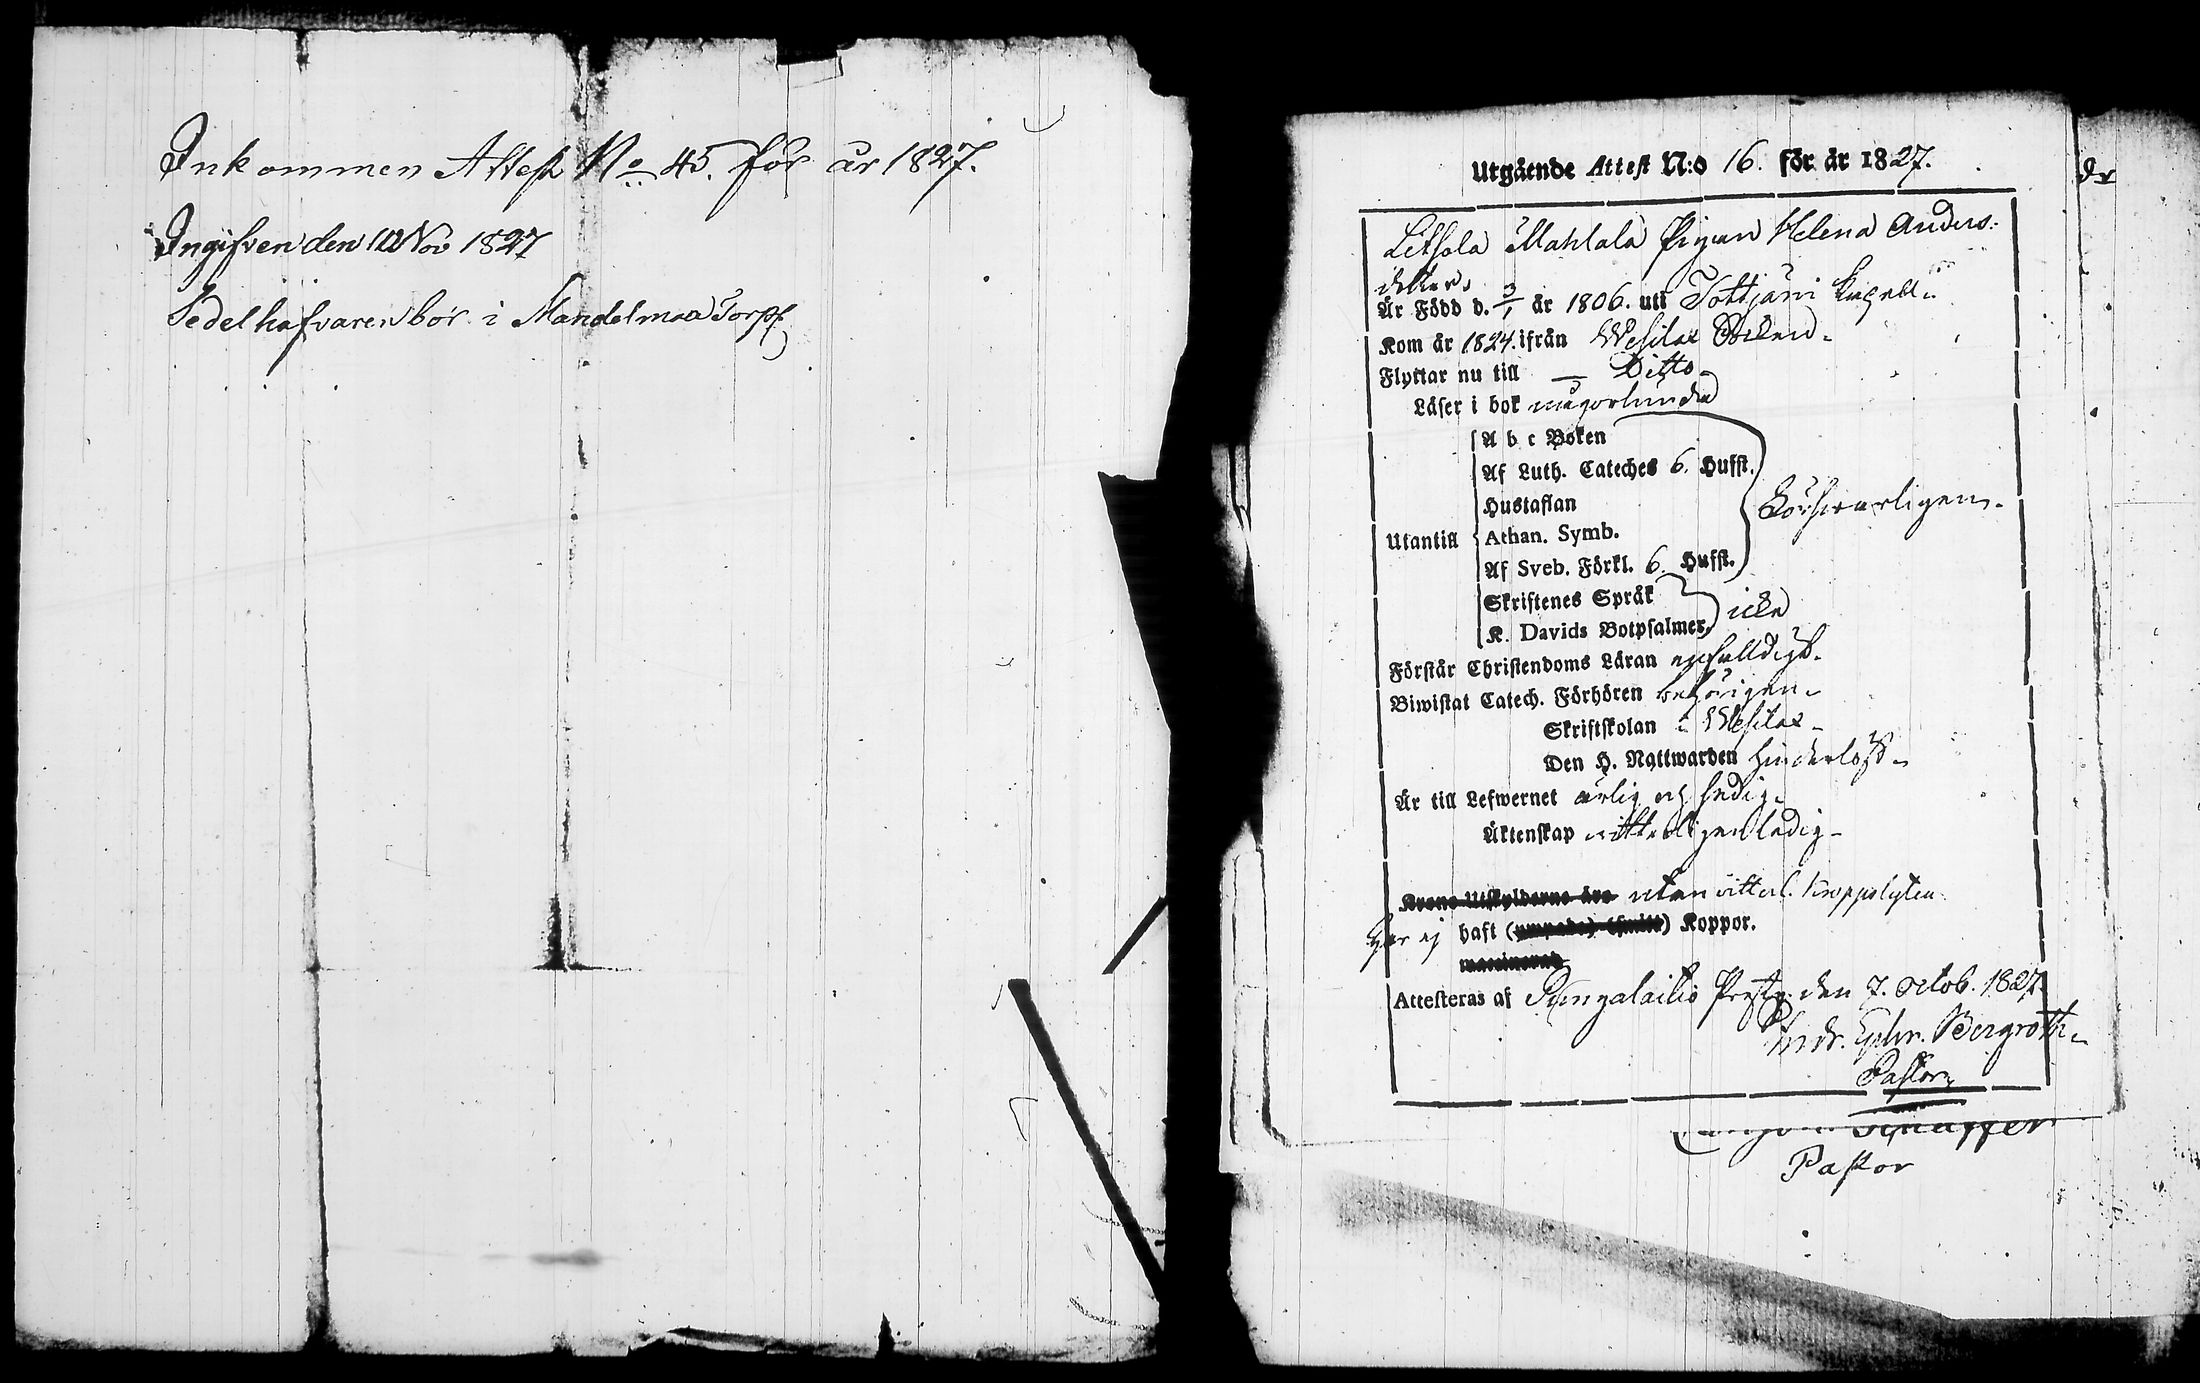 Inkommen Attest No 45. för år 1827.
Ingifven den 10 Nov 1827
Sedelhafvaren bor i Mandelmaa Torpf
Utgående Attest N:o 16. för år 1827.
dr
Mahlala Pigan Helena Anders:
dotter,
Är Född d. 3/1 år 1806. uti Tottjärvi
Kom år 1824. ifrån Wesilax Socken.
Flyttar nu till — Ditto
Läser i bok någorlunda
A b c Boken
Af Luth. Cateches 6. Hufst.
Hustaflan
Utantill Athan. Symb.
Af Sveb. Förkl. 6. Hufst.
Försvarligen.
Skriftenes Språk
K. Davids Botpsalmer, icke
Förstår Christendoms Läran enfalldigt.
Biwistat Catech. Förhören behörigen.
Skriftskolan i Wesilax
Den H. Nattwarden hinderlöst.
Är till Lefwernet ärlig och sedig.
Äktenskap vitterligen ledig
Krono Utskylderne äro utan vitterl. kroppslyten
Har ej haft ( ) Koppor.
Attesteras af Pungalaitio Prestg. den 7. Octob. 1827.
Andr. Ephr. Bergroth.
Pastor
Schäffer
Pastor